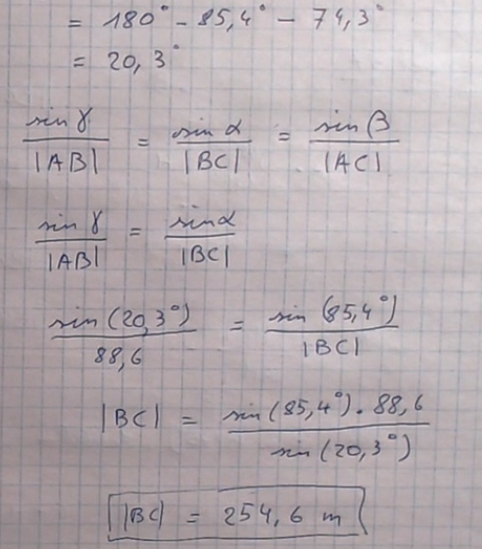 = 180° - 85,4° - 74,3°
= 20,3°
sin γ / |AB| = sin α / |BC| = sin β / |AC|
sin γ / |AB| = sin α / |BC|
sin (20,3°) / 88,6 = sin (85,4°) / |BC|
|BC| = sin (85,4°) . 88,6 / sin (20,3°)
|BC| = 254,6 m